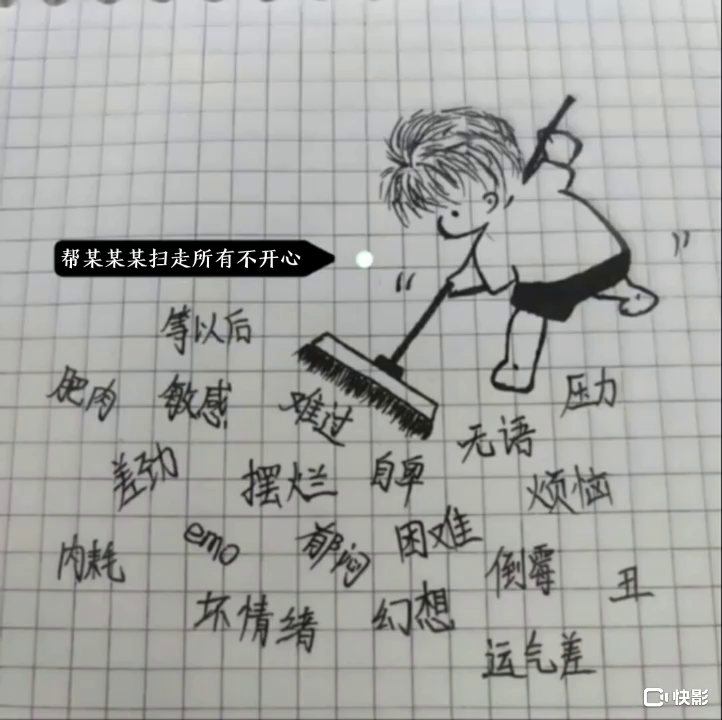 帮某某某扫走所有不开心
等以后
肥肉 敏感 难过 压力
差劲 摆烂 自卑 无语 烦恼
内耗 emo 郁闷 困难 倒霉 丑
坏情绪 幻想 运气差
快影